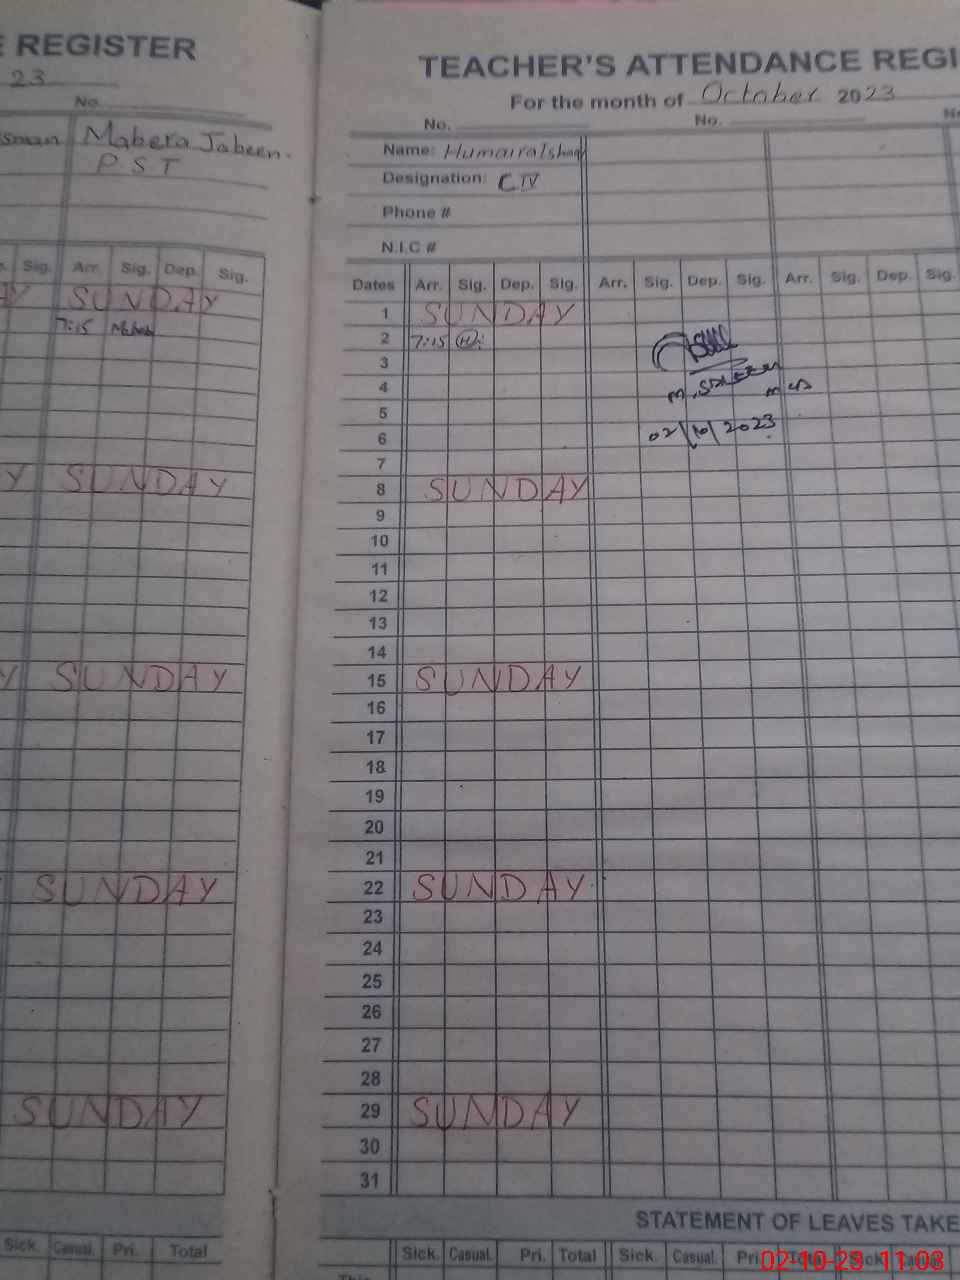 E REGISTER
23
No.
sman Mabera Jabeen.
P.S.T
Sig. Arr. Sig. Dep. Sig.
AY SUNDAY
7:15
Y SUNDAY
Y SUNDAY
SUNDAY
SUNDAY
Sick. Casual. Pri. Total
TEACHER'S ATTENDANCE REGI
For the month of October 2023
No. No. No
Name: Humaira Ishaq
Designation: CTV
Phone #
N.I.C #
Dates Arr. Sig. Dep. Sig. Arr. Sig. Dep. Sig. Arr. Sig. Dep. Sig.
1 SUNDAY
2 7:15 H
3
4
5
6
02/10/2023
7
8 SUNDAY
9
10
11
12
13
14
15 SUNDAY
16
17
18
19
20
21
22 SUNDAY
23
24
25
26
27
28
29 SUNDAY
30
31
STATEMENT OF LEAVES TAKE
Sick. Casual. Pri. Total Sick. Casual. Pri. Total Sick. Casual.
This
02-10-23 11:03